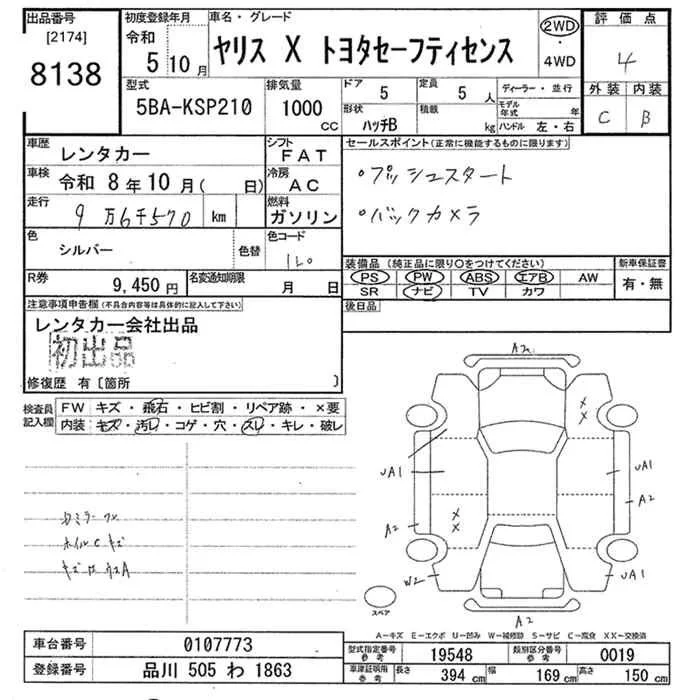 出品番号
[2174]
8138
初度登録年月
令和
5 10月
車名・グレード
ヤリス X トヨタセーフティセンス
2WD
・
4WD
評価点
4
外装 内装
C B
型式
5BA-KSP210
排気量
1000
CC
ドア 5
定員 5 人
形状
ハッチB
積載
kg
ディーラー・並行
モデル年式 年
ハンドル 左・右
車歴
レンタカー
シフト
FAT
車検
令和 8年 10月( 日)
冷房
AC
走行
9万6千570 km
燃料
ガソリン
色
シルバー
色替
色コード
1L0
R券
9,450円
名変通知期限
月 日
セールスポイント(正常に機能するものに限ります)
・プッシュスタート
・バックカメラ
装備品(純正品に限り○をつけてください)
PS PW ABS エアB AW
SR ナビ TV カワ
新車保証書
有・無
後日品
注意事項申告欄(不具合内容等は具体的に記入して下さい)
レンタカー会社出品
初出品
修復歴 有〔箇所 〕
検査員
記入欄
FW キズ・飛石・ヒビ割・リペア跡・×要
内装 キズ・汚レ・コゲ・穴・スレ・キレ・破レ
ホイルCキズ
UA1
A2
W2
UA1
A2
UA1
A2
スペア
A-キズ E-エクボ U-凹み W-補修跡 S-サビ C-腐食 XX-交換済
車台番号
0107773
登録番号
品川 505 わ 1863
型式指定番号
参考
19548
類別区分番号
参考
0019
車庫証明用
参考
長さ 394 cm
幅 169 cm
高さ 150 cm